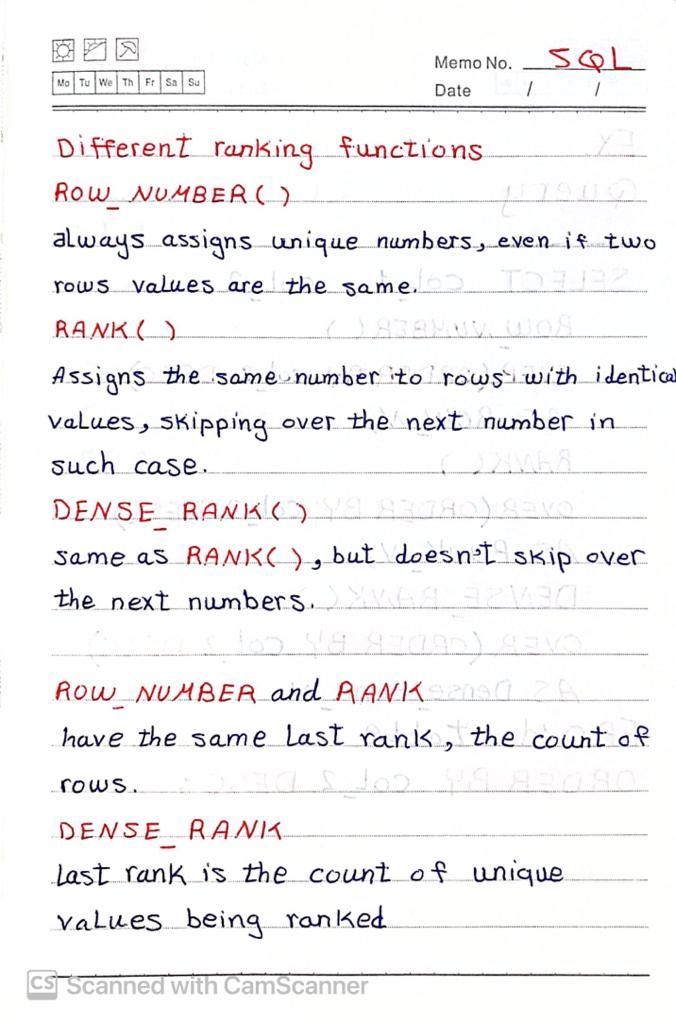 Memo No. SQL
Mo Tu We Th Fr Sa Su
Date / /
Different ranking functions
ROW_NUMBER( )
always assigns unique numbers, even if two
rows values are the same.
RANK( )
Assigns the same number to rows with identical
values, skipping over the next number in
such case.
DENSE_RANK( )
same as RANK( ), but doesn't skip over
the next numbers.
ROW_NUMBER and RANK
have the same Last rank, the count of
rows.
DENSE_RANK
Last rank is the count of unique
values being ranked
CS Scanned with CamScanner